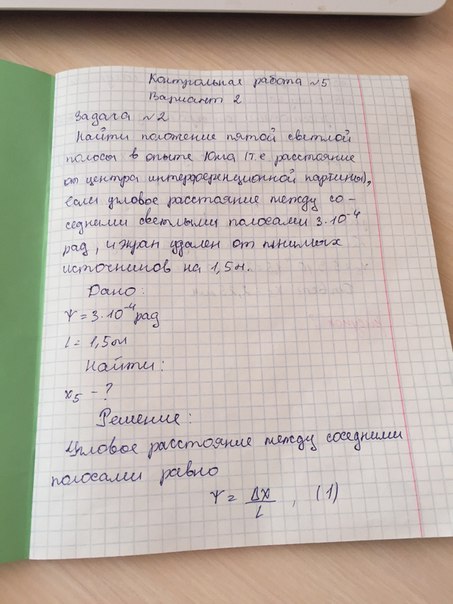 Контрольная работа №5
Вариант 2
Задача №2
Найти положение пятой светлой
полосы в опыте Юнга (т.е. расстояние
от центра интерференционной картины),
если угловое расстояние между со-
седними светлыми полосами 3·10⁻⁴
рад, и экран удален от мнимых
источников на 1,5м.
Дано:
Ψ = 3·10⁻⁴ рад
L = 1,5м
Найти:
x₅ - ?
Решение:
Угловое расстояние между соседними
полосами равно
Ψ = Δx / L , (1)